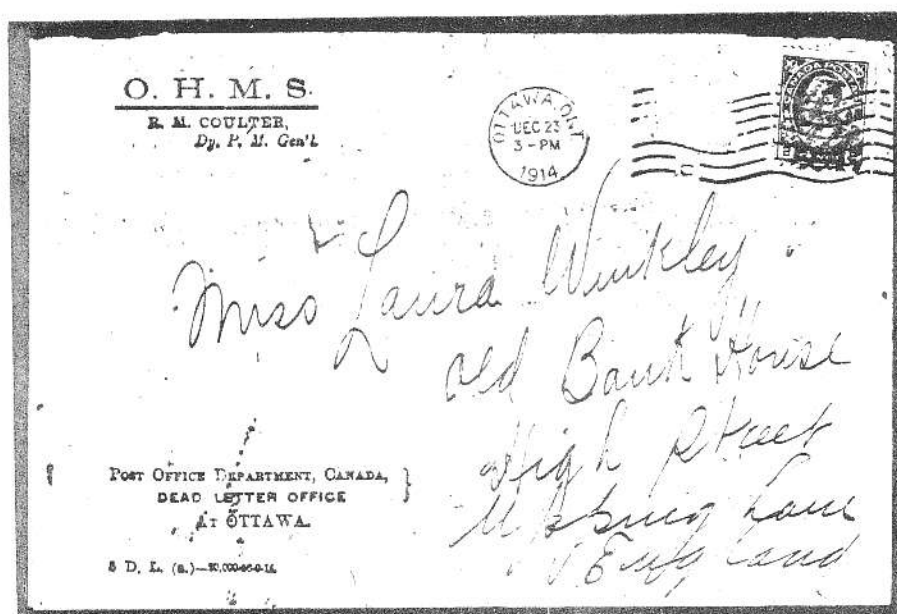 O. H. M. S.
R. M. COULTER,
Dy. P. M. Gen'l.
OTTAWA, ONT
DEC 23
3 - PM
1914
CANADA POSTAGE
Miss Laura Winkley
Old Bank House
High Street
England
POST OFFICE DEPARTMENT, CANADA,
DEAD LETTER OFFICE
AT OTTAWA.